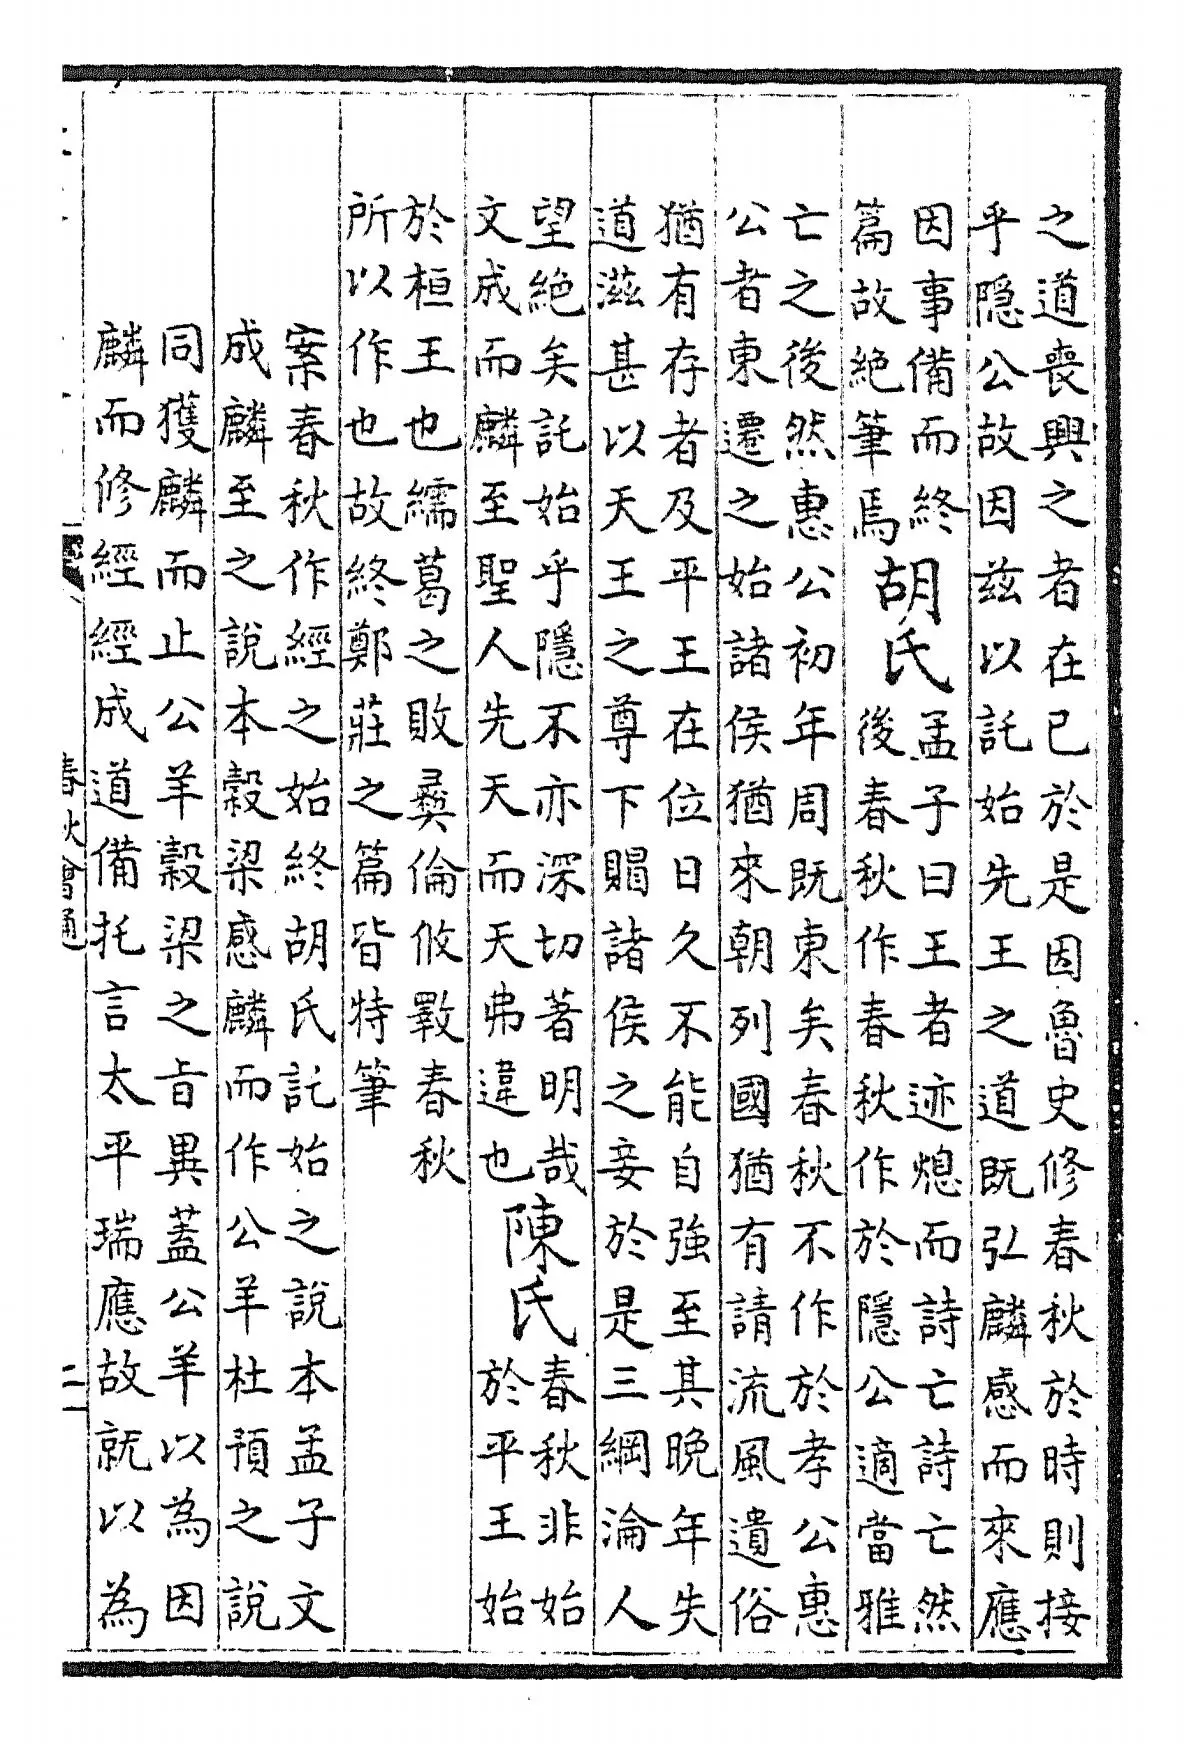 之道喪興之者在已於是因魯史修春秋於時則接
乎隐公故因兹以託始先王之道既弘麟感而來應
因事備而終
篇故絶筆焉
胡氏
孟子曰王者迹熄而詩亡詩亡然
後春秋作春秋作於隱公適當雅
亡之後然惠公初年周既東矣春秋不作於孝公惠
公者東遷之始諸侯猶來朝列國猶有請流風遺俗
猶有存者及平王在位日久不能自強至其晚年失
道滋甚以天王之尊下賵諸侯之妾於是三綱淪人
望絶矣託始乎隱不亦深切著明哉
文成而麟至聖人先天而天弗違也
陳氏
春秋非始
於平王始
於桓王也繻葛之敗彛倫攸斁春秋
所以作也故終鄭莊之篇皆特筆
案春秋作經之始終胡氏託始之說本孟子文
成麟至之說本穀梁感麟而作公羊杜預之說
同獲麟而止公羊穀梁之㫖異蓋公羊以為因
麟而修經經成道備托言太平瑞應故就以為
春秋會通
二